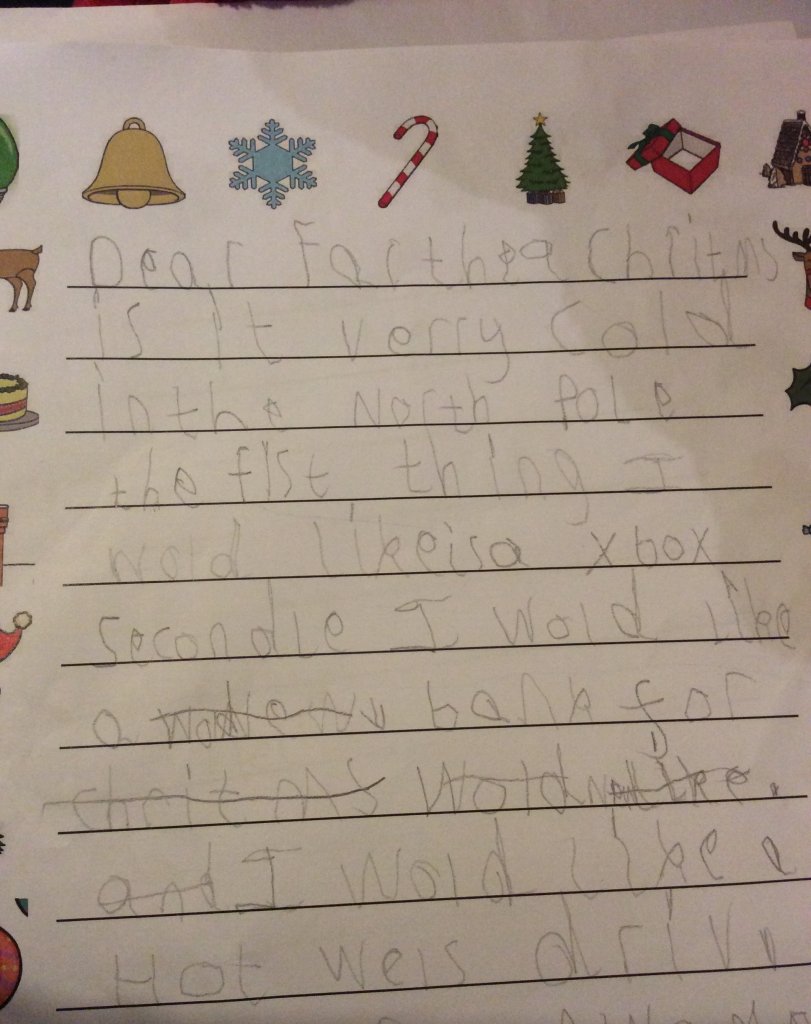 Dear Farther Chritms
is it verry cold
in the North Pole
the fist thing I
wold like is a xbox
secondle I wold like
a bank for
chritmas wold like.
and I wold like a
Hot weis driv